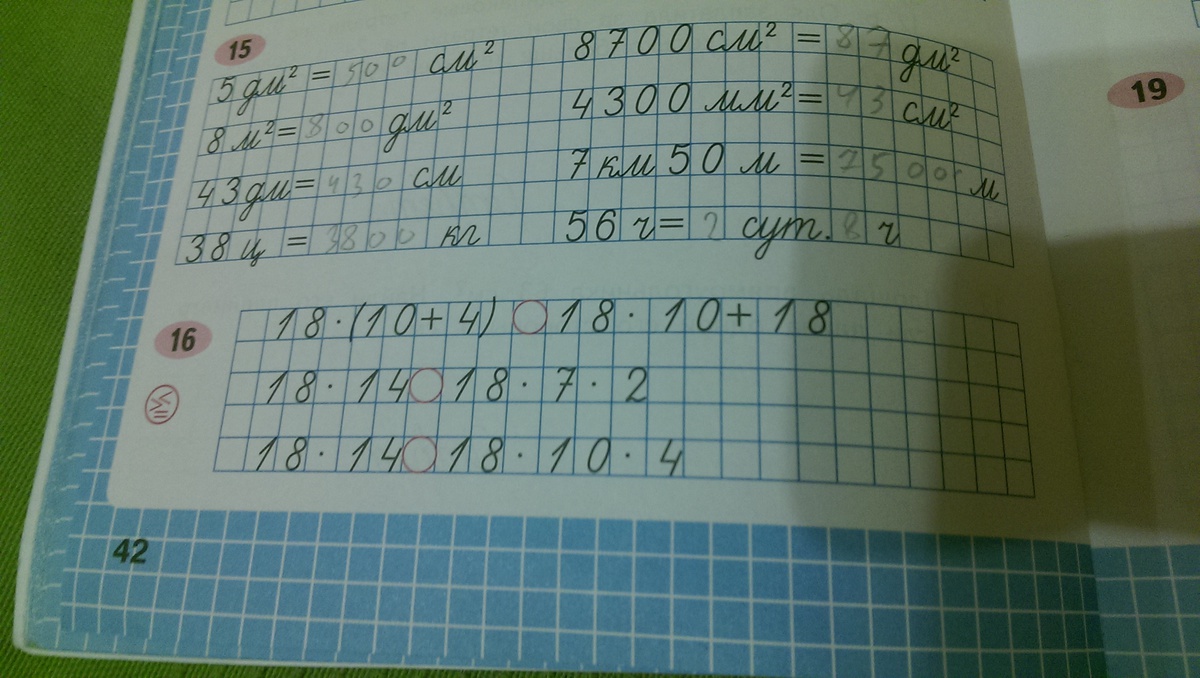 15
5 дм² = 500 см²
8 м² = 800 дм²
43 дм = 430 см
38 ц = 3800 кг
8700 см² = 87 дм²
4300 мм² = 43 см²
7 км 50 м = 7500 м
56 ч = 2 сут. 8 ч
16
18 · (10 + 4) ○ 18 · 10 + 18
18 · 14 ○ 18 · 7 · 2
18 · 14 ○ 18 · 10 · 4
42
19